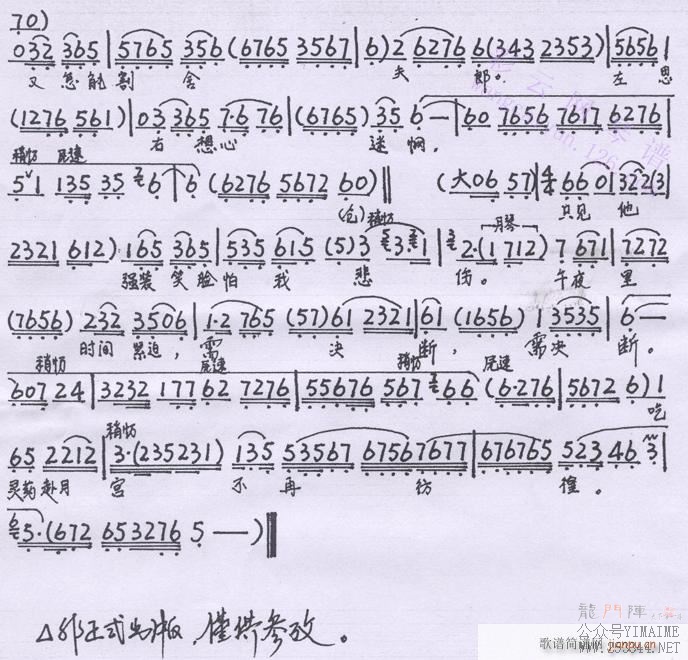 70)
032 365 | 5765 356 (6765 3567 | 6) 2 6276 6 (343 2353) | 5656 |
又怎能割 舍 夫 郎。 左思
(1276 561) | 03 365 7·6 76 | (6765) 35 6 — | 60 7656 7617 6276 |
右想心 迷惘。
稍忙 尾速
5 1 135 35 6 6 (6276 5672 60) || (大06 57) | 66 01 322(3 |
(仓) 稍忙 只见 他
2321 612) 165 365 | 535 615 (5) 3 3·1 | 2·(1 712) 7 671 | 7272
月琴
强装 笑脸怕 我 悲 伤。 午夜 里
(7656) 232 3506 | 1·2 765 (57) 61 2321 | 61 (1656) 1 3535 | 6 —
时间 紧迫, 需 决 断, 需决 断。
稍忙 尾速 稍忙 尾速
607 24 | 3232 177 62 7276 | 55676 567 66 (6·276 | 5672 6) 1
吃
65 2212 | 3·(235231) 135 53567 67567677 | 676765 523 46 3 |
稍忙
灵药赴月 宫 不 再 彷 徨。
5·(672 653276 5 — — )
△非正式出版,仅供参考。
龍門陣
公众号YIMAIME
歌谱简谱网 jianpu.cn